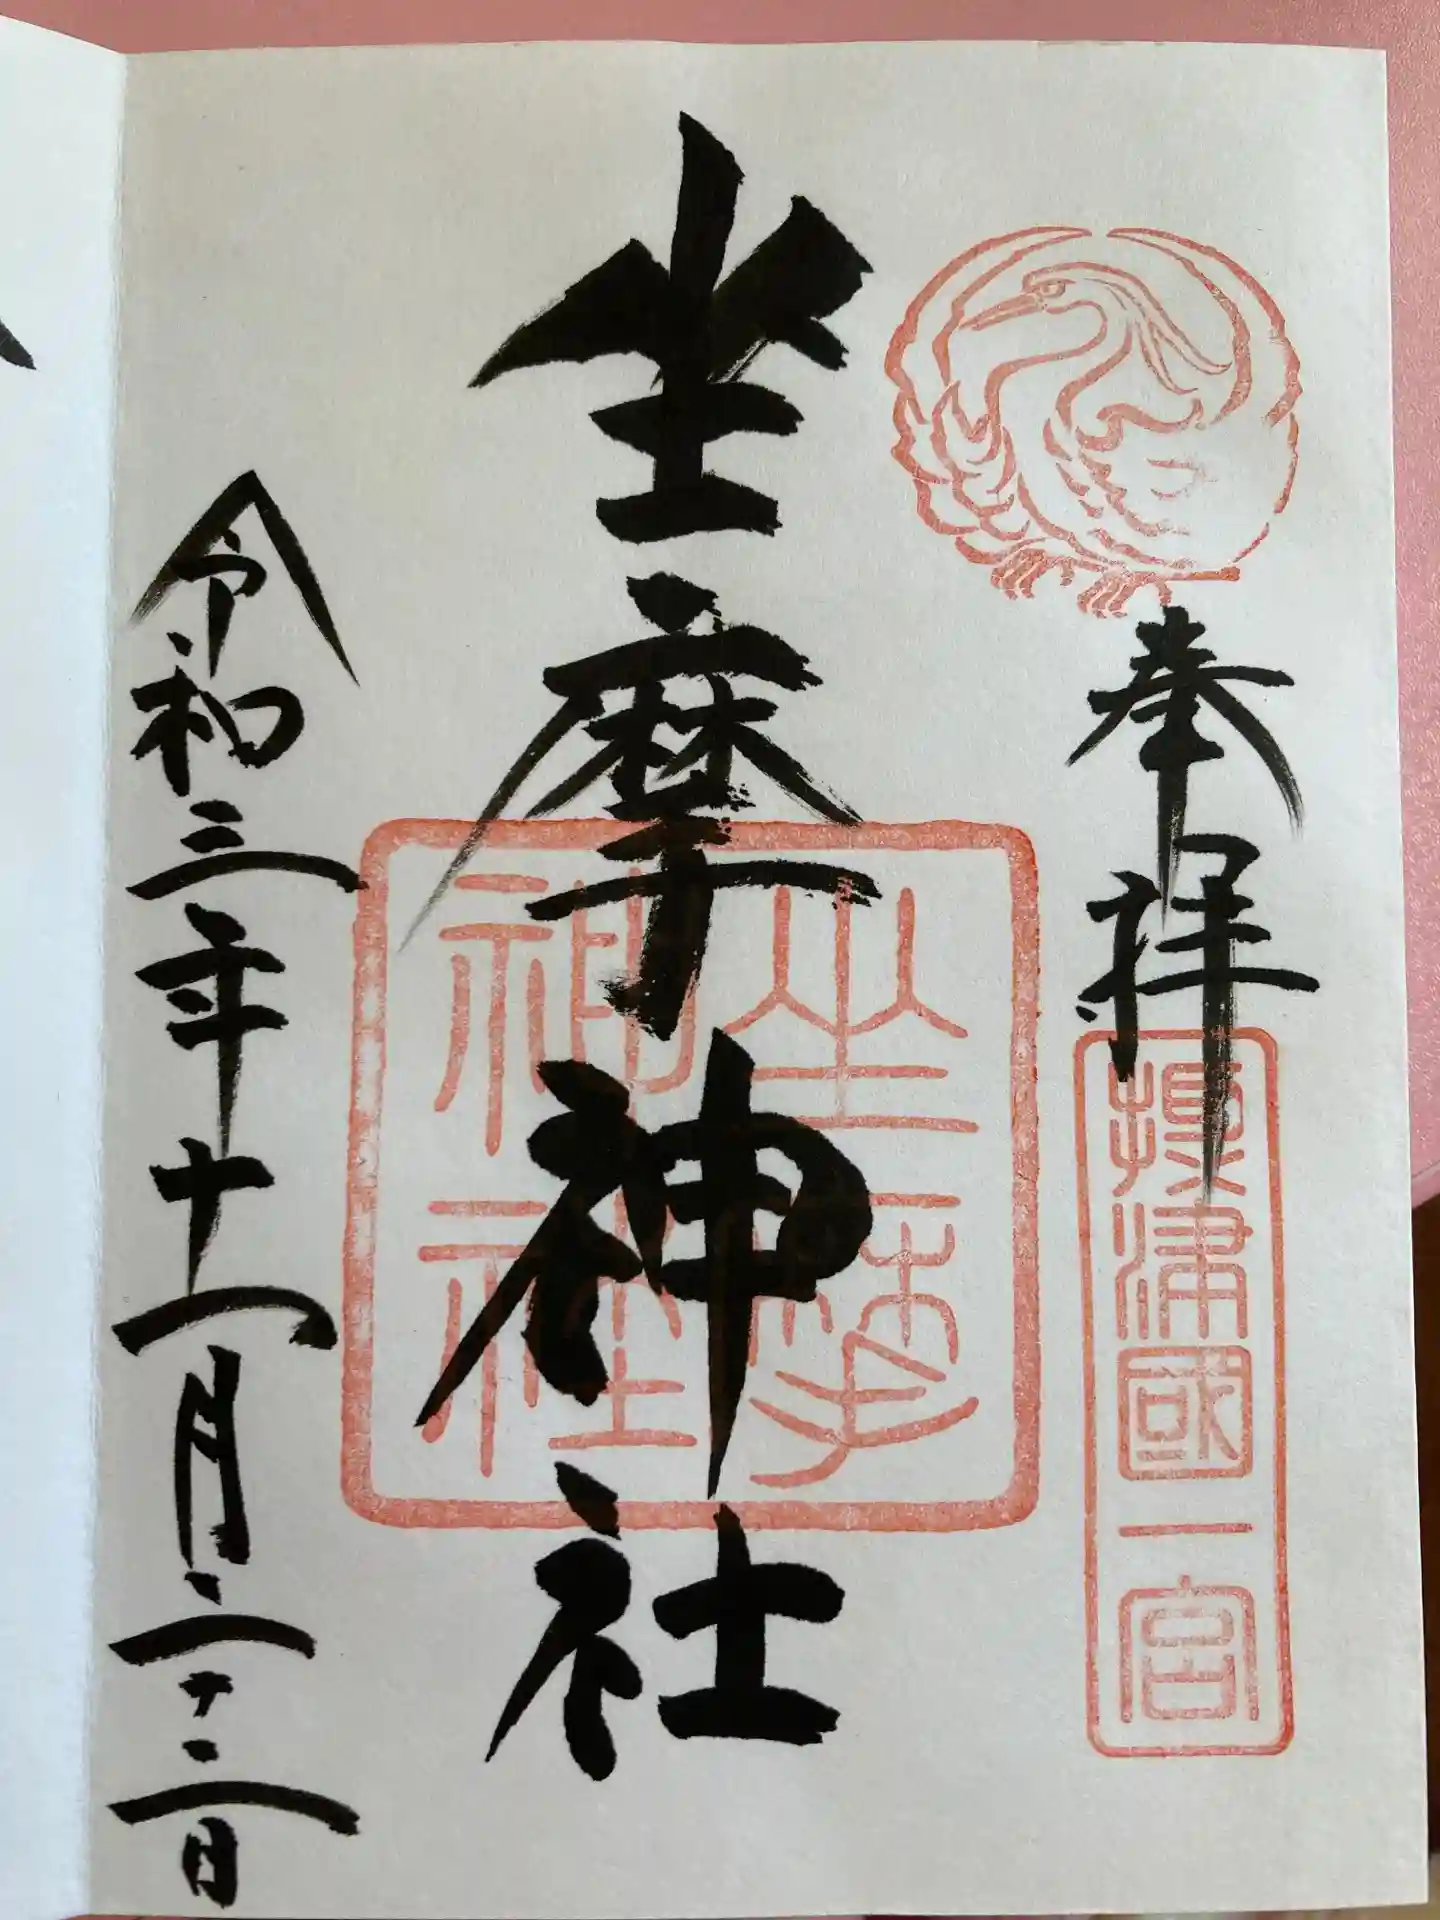 奉拝
摂津國一宮
坐摩神社
坐摩神社
令和三年十一月二十二日